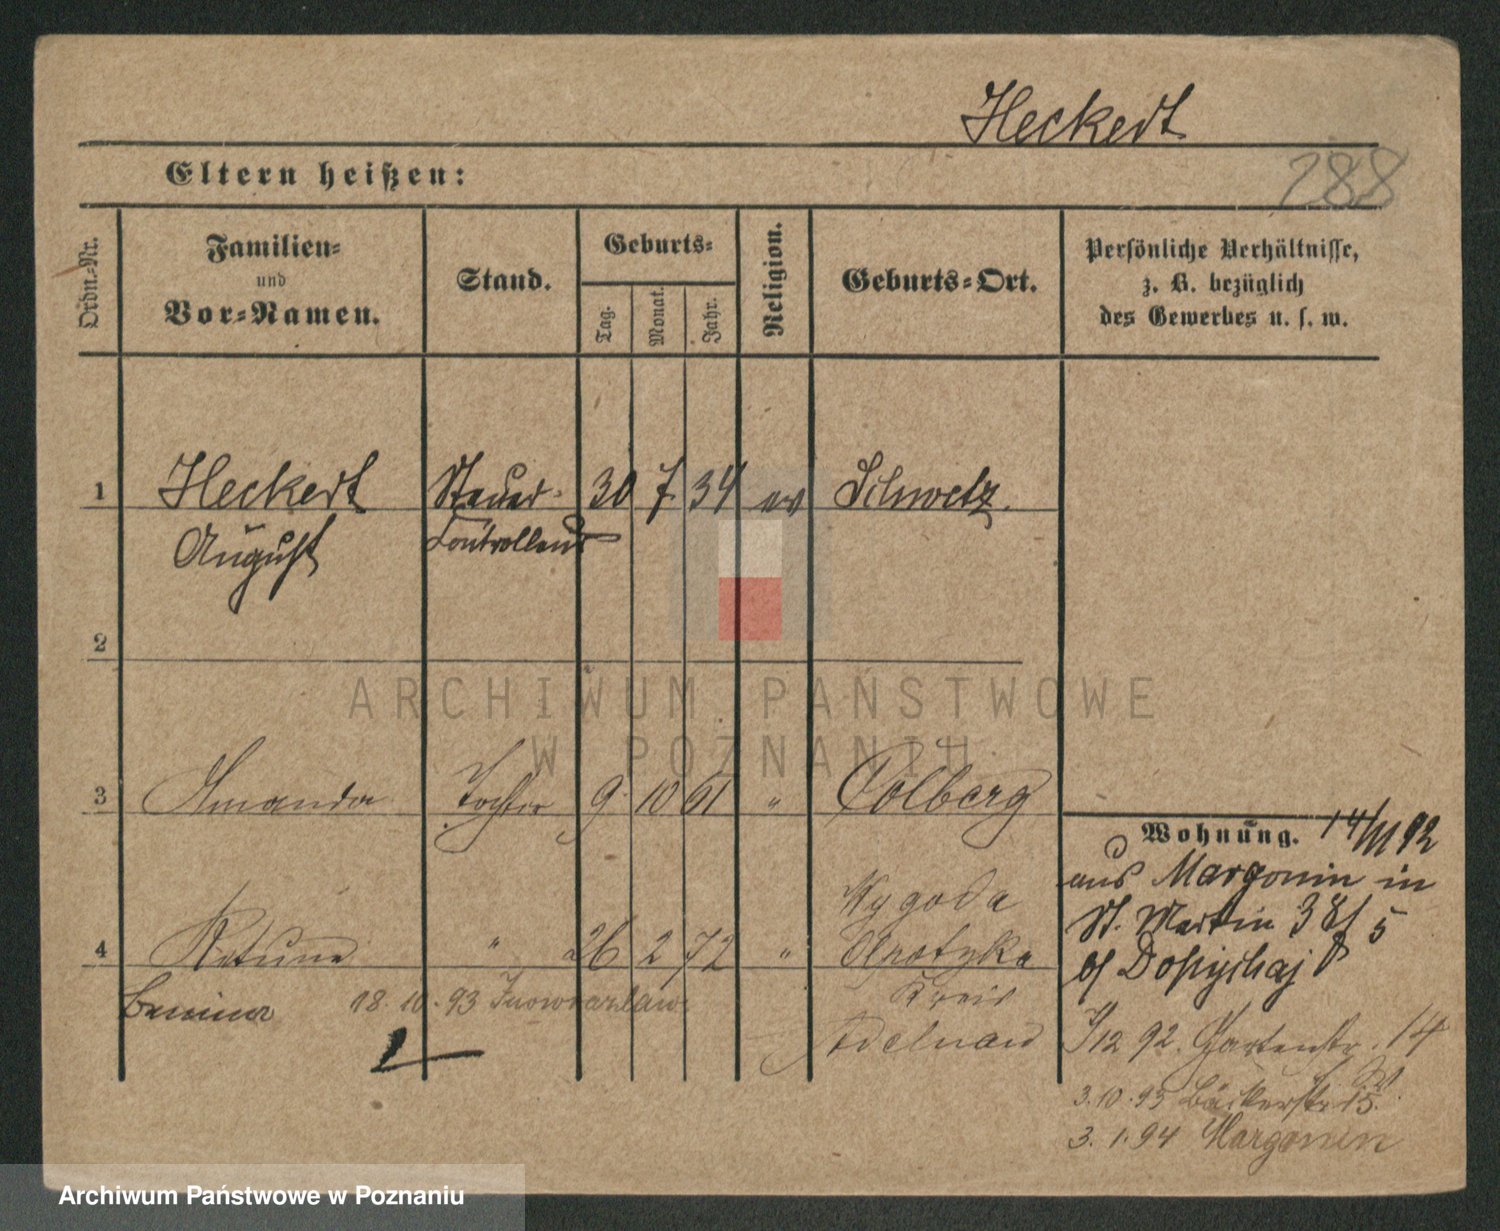 Heckert
288
Eltern heißen:
Ordn.-Nr.
Familien-
und
Vor-Namen.
Stand.
Geburts-
Tag.
Monat.
Jahr.
Religion.
Geburts-Ort.
Persönliche Verhältnisse,
z. B. bezüglich
des Gewerbes u. s. w.
1 Heckert Steuer- 30 7 34 ev Schwetz.
August
2
ARCHIWUM PAŃSTWOWE
W POZNANIU
3 Amanda Tochter 9. 10 61 " Colberg
Wohnung. 14/11 92
aus Margonin in
St. Martin
Wygoda
4 " 26 2 72 "
Kreis
Adelnau
18.10.93 Inowrazlaw
12 92. Gartenstr. 14
3.10.93 Bäckerstr 15.
3.1.94 Margonin
Archiwum Państwowe w Poznaniu